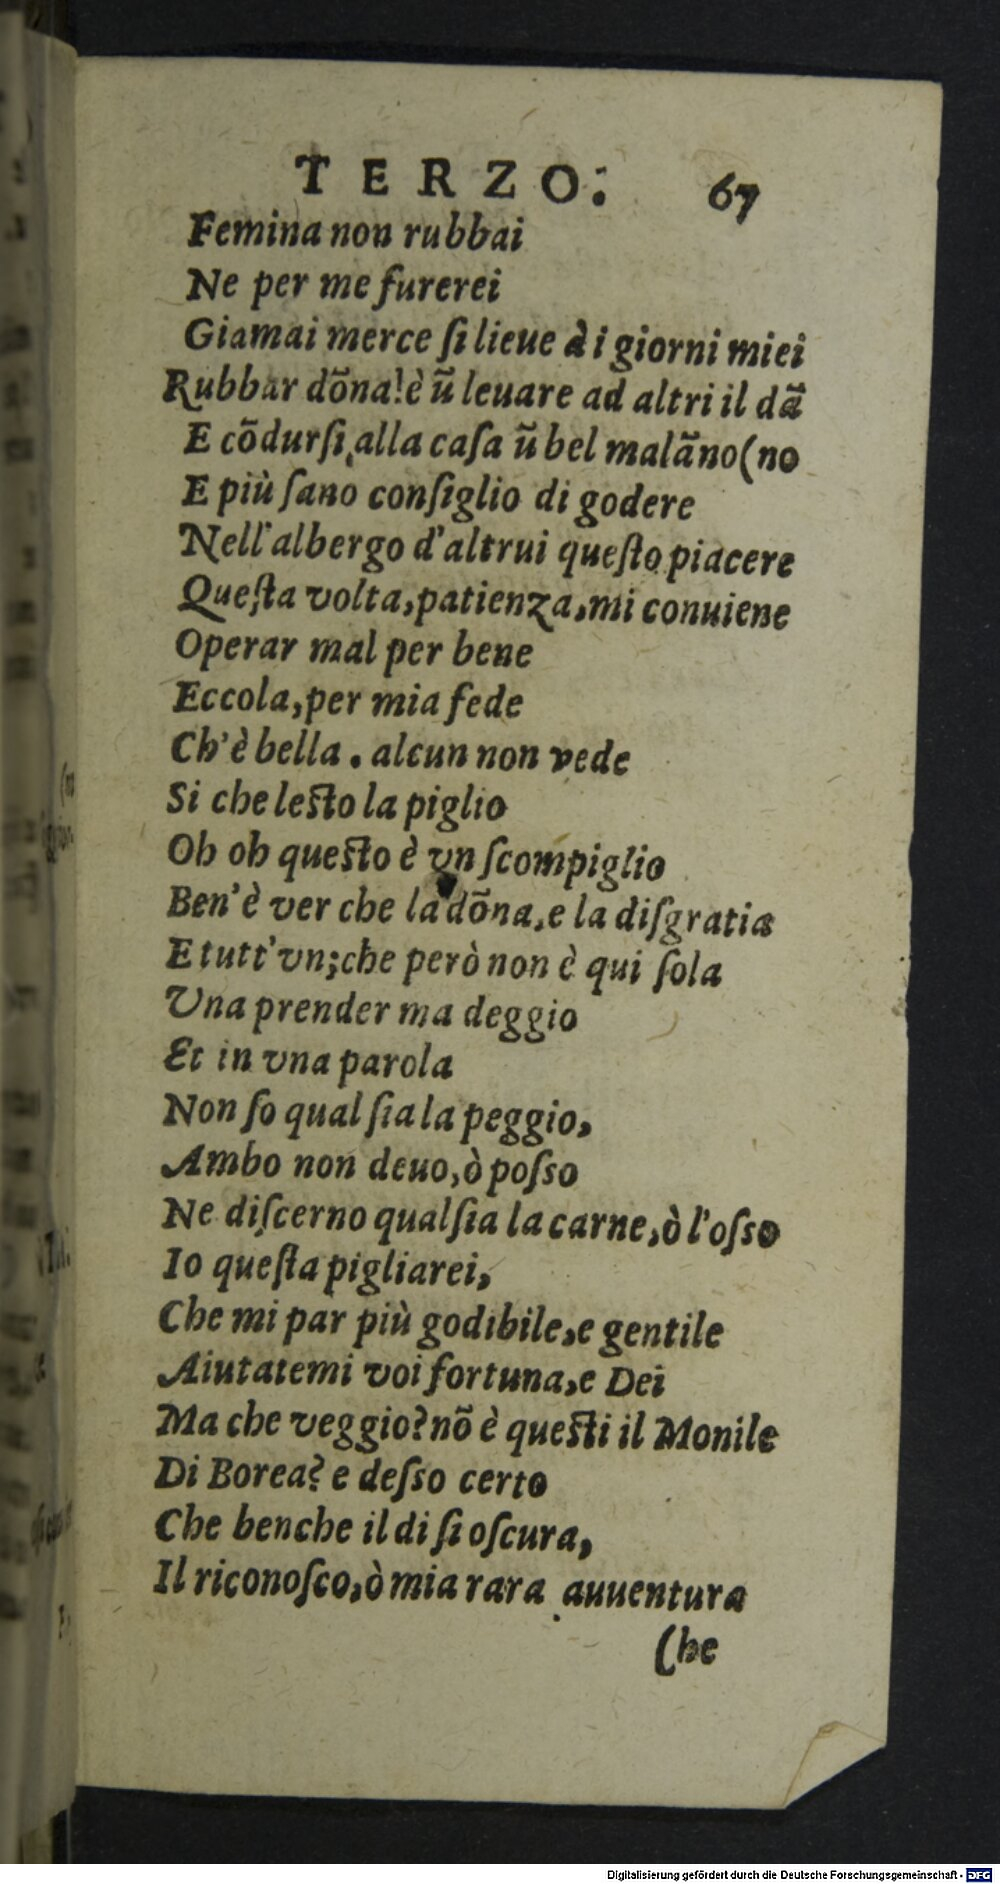 TERZO. 67
Femina non rubbai
Ne per me furerei
Giamai merce ſi lieue à i giorni miei
Rubbar dõna! è ũ leuare ad altri il dã
E cõdurſi, alla caſa ũ bel malãno (no
E più ſano conſiglio di godere
Nell'albergo d'altrui queſto piacere
Queſta volta, patienza, mi conuiene
Operar mal per bene
Eccola, per mia fede
Ch'è bella. alcun non vede
Si che leſto la piglio
Oh oh queſto è vn ſcompiglio
Ben'è ver che la dõna, e la diſgratia
E tutt'vn; che però non è qui ſola
Una prender ma deggio
Et in vna parola
Non ſo qual ſia la peggio,
Ambo non deuo, ò poſso
Ne diſcerno qual ſia la carne, ò l'oſso
Io queſta pigliarei,
Che mi par più godibile, e gentile
Aiutatemi voi fortuna, e Dei
Ma che veggio? nõ è queſti il Monile
Di Borea? e deſso certo
Che benche il di ſi oſcura,
Il riconoſco, ò mia rara auuentura
Che
Digitalisierung gefördert durch die Deutsche Forschungsgemeinschaft - DFG